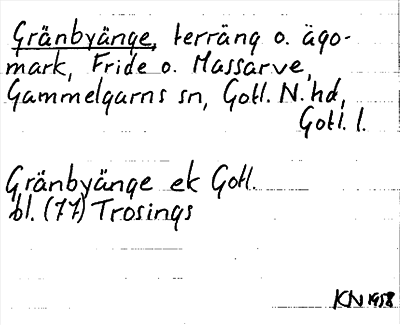 Gränbyänge, terräng o. ägo-
mark, Fride o. Massarve,
Gammelgarns sn, Gotl. N. hd,
Gotl. l.
Gränbyänge ek Gotl.
bl. (77) Trosings
KN 1958